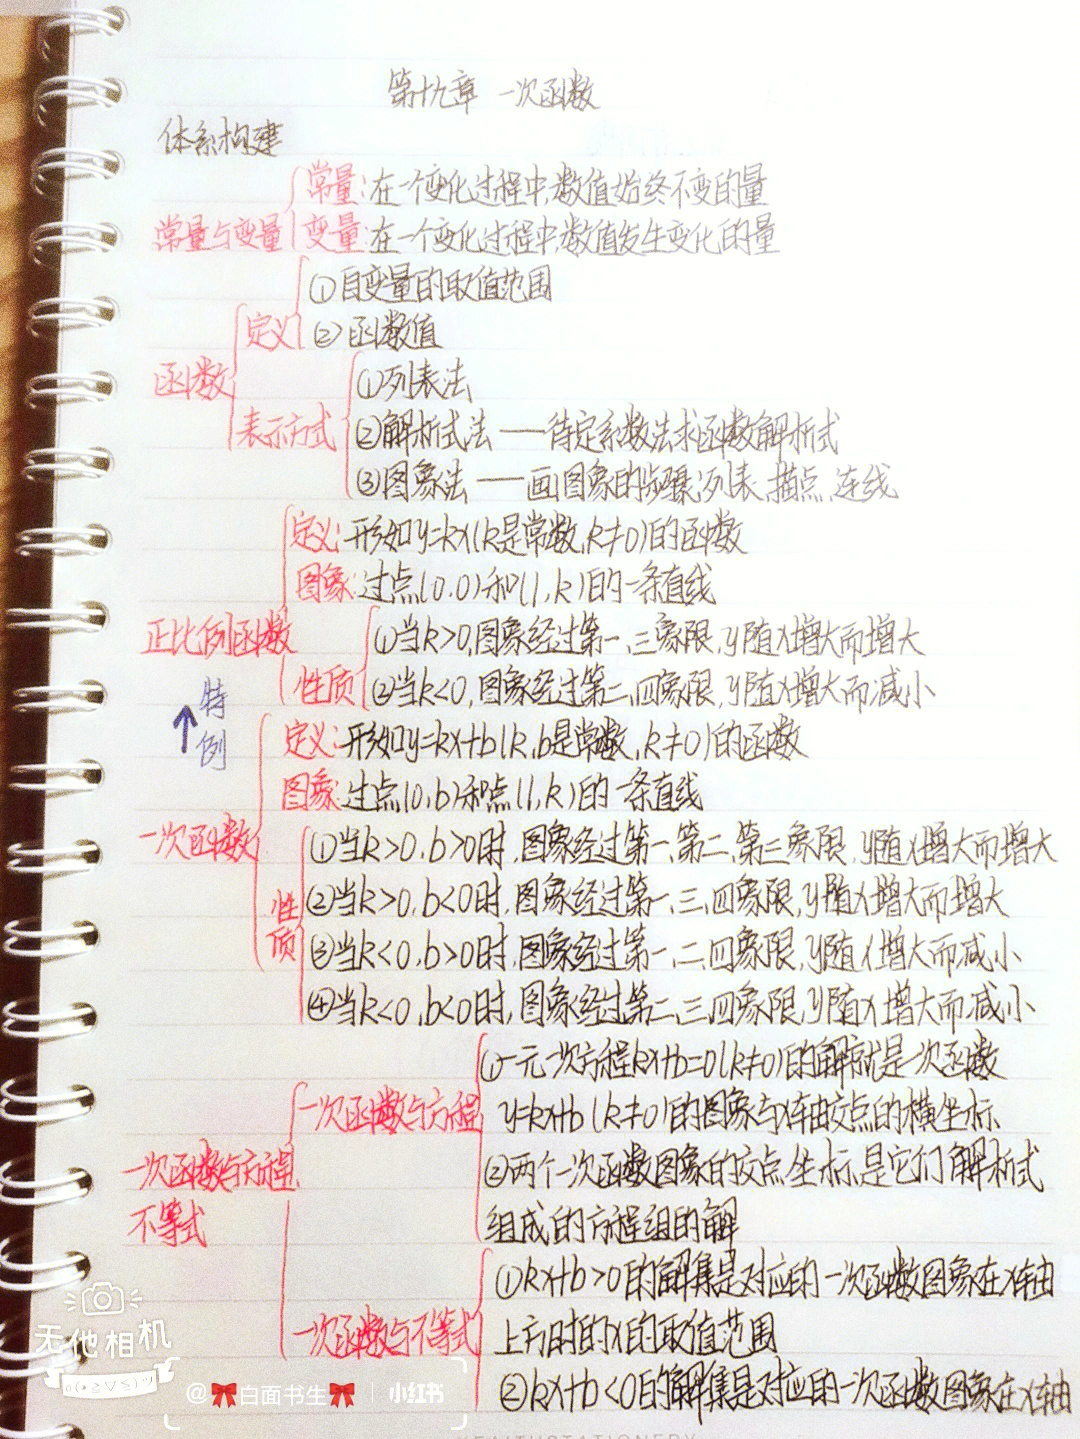 第十九章 一次函数
体系构建
常量:在一个变化过程中,数值始终不变的量
常量与变量 变量:在一个变化过程中,数值发生变化的量
①自变量的取值范围
定义 ②函数值
函数 ①列表法
表示方式 ②解析式法——待定系数法求函数解析式
③图象法——画图象的步骤:列表、描点、连线
定义:形如y=kx(k是常数,k≠0)的函数
图象:过点(0,0)和(1,k)的一条直线
正比例函数 ①当k>0,图象经过第一、三象限,y随x增大而增大
性质 ②当k<0,图象经过第二、四象限,y随x增大而减小
特例
定义:形如y=kx+b(k,b是常数,k≠0)的函数
图象:过点(0,b)和点(1,k)的一条直线
一次函数 ①当k>0,b>0时,图象经过第一、第二、第三象限,y随x增大而增大
性质 ②当k>0,b<0时,图象经过第一、三、四象限,y随x增大而增大
③当k<0,b>0时,图象经过第一、二、四象限,y随x增大而减小
④当k<0,b<0时,图象经过第二、三、四象限,y随x增大而减小
①一元一次方程kx+b=0(k≠0)的解就是一次函数
一次函数与方程 y=kx+b(k≠0)的图象与x轴交点的横坐标
一次函数与方程、 ②两个一次函数图象的交点坐标是它们解析式
不等式 组成的方程组的解
①kx+b>0的解集是对应的一次函数图象在x轴
一次函数与不等式 上方时的x的取值范围
②kx+b<0的解集是对应的一次函数图象在x轴
无他相机
@🎀白面书生🎀 | 小红书